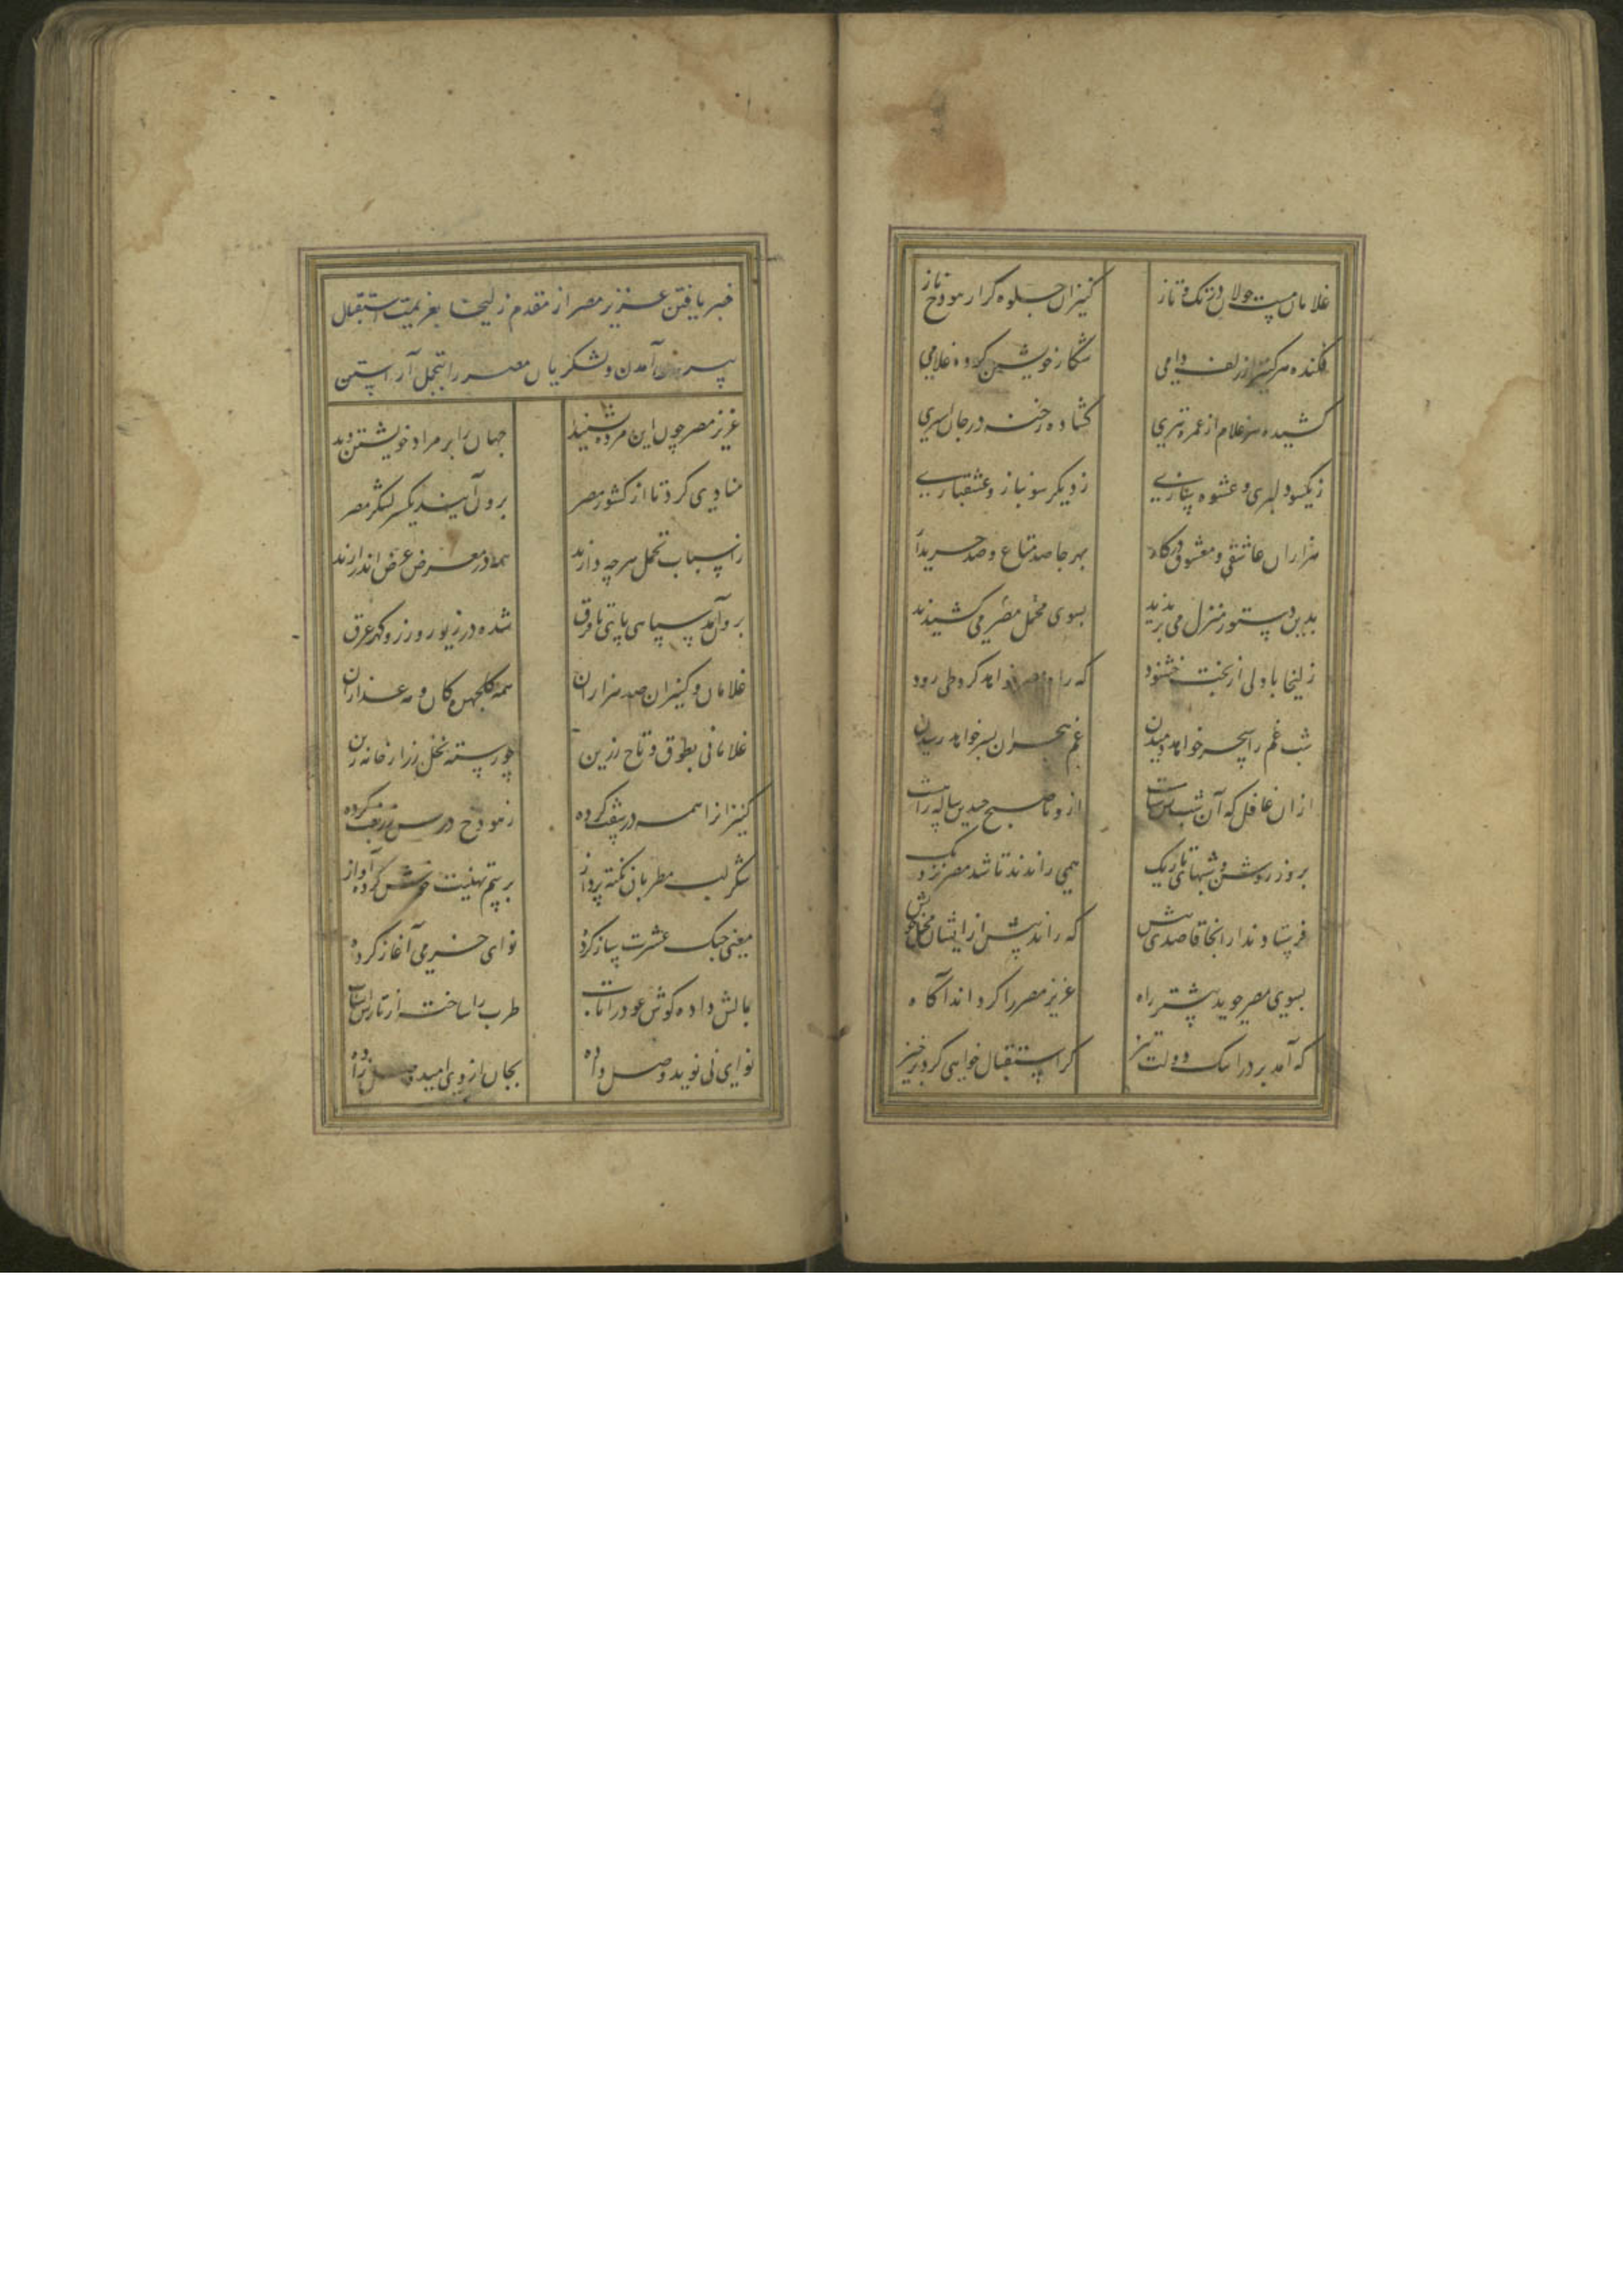 غلامان مست جولان در تک و تاز کنیزان جلوه‌گر از هودج ناز
فکنده هر کنیز از زلف دامی شکار خویش کرده غلامی
کشیده هر غلام از غمزه تیری گشاده رخنه در جان اسیری
ز یکسو دلبری و عشوه سازی ز دیگر سو نیاز و عشقبازی
هزاران عاشق و معشوق در کار بهر جا صد متاع و صد خریدار
بدین دستور منزل می بریدند بسوی محمل مصر می کشیدند
زلیخا با دلی از بخت خشنود که راه مصر خواهد کرد طی زود
شب غم را سحر خواهد دمیدن غم هجران بسر خواهد رسیدن
ازان غافل که آن شب بس سیاهست ازو تا صبح چندین ساله راهست
بروز روشن و شبهای تاریک همی راندند تا شد مصر نزدیک
فرستادند از آنجا قاصدی پیش که راند پیش از ایشان محمل خویش
بسوی مصر جوید پیشتر راه عزیز مصر را گرداند آگاه
که آمد بر در اینک دولت تیز گر استقبال خواهی کرد برخیز
خبر یافتن عزیز مصر از مقدم زلیخا بعزیمت استقبال
بیرون آمدن و لشکریان مصر را بتجمل آراستن
عزیز مصر چون این مژده بشنید جهان را بر مراد خویشتن دید
منادی کرد تا از کشور مصر برون آیند یکسر لشکر مصر
ز اسباب تجمل هر چه دارند همه در معرض عرض اندر آرند
برون آمد سپاهی پای تا فرق شده در زیور و در زر و گهر غرق
غلامان و کنیزان صد هزاران همه گلچهرگان و مه عذاران
غلامانی بطوق و تاج زرین چو رسته نخل زر از خانه زین
کنیزانرا همه در کرده ز هودج در پس زربفت کرده
شکر لب مطربان نکته پرداز برسم تهنیت خوش کرده آواز
مغنی چنگ عشرت ساز کرده نوای خرمی آغاز کرده
بمالش داده گوش عود را تاب طرب را ساخته از تارش اسباب
نوای نی نوید وصل داده بجان از وی امید وصل زاده